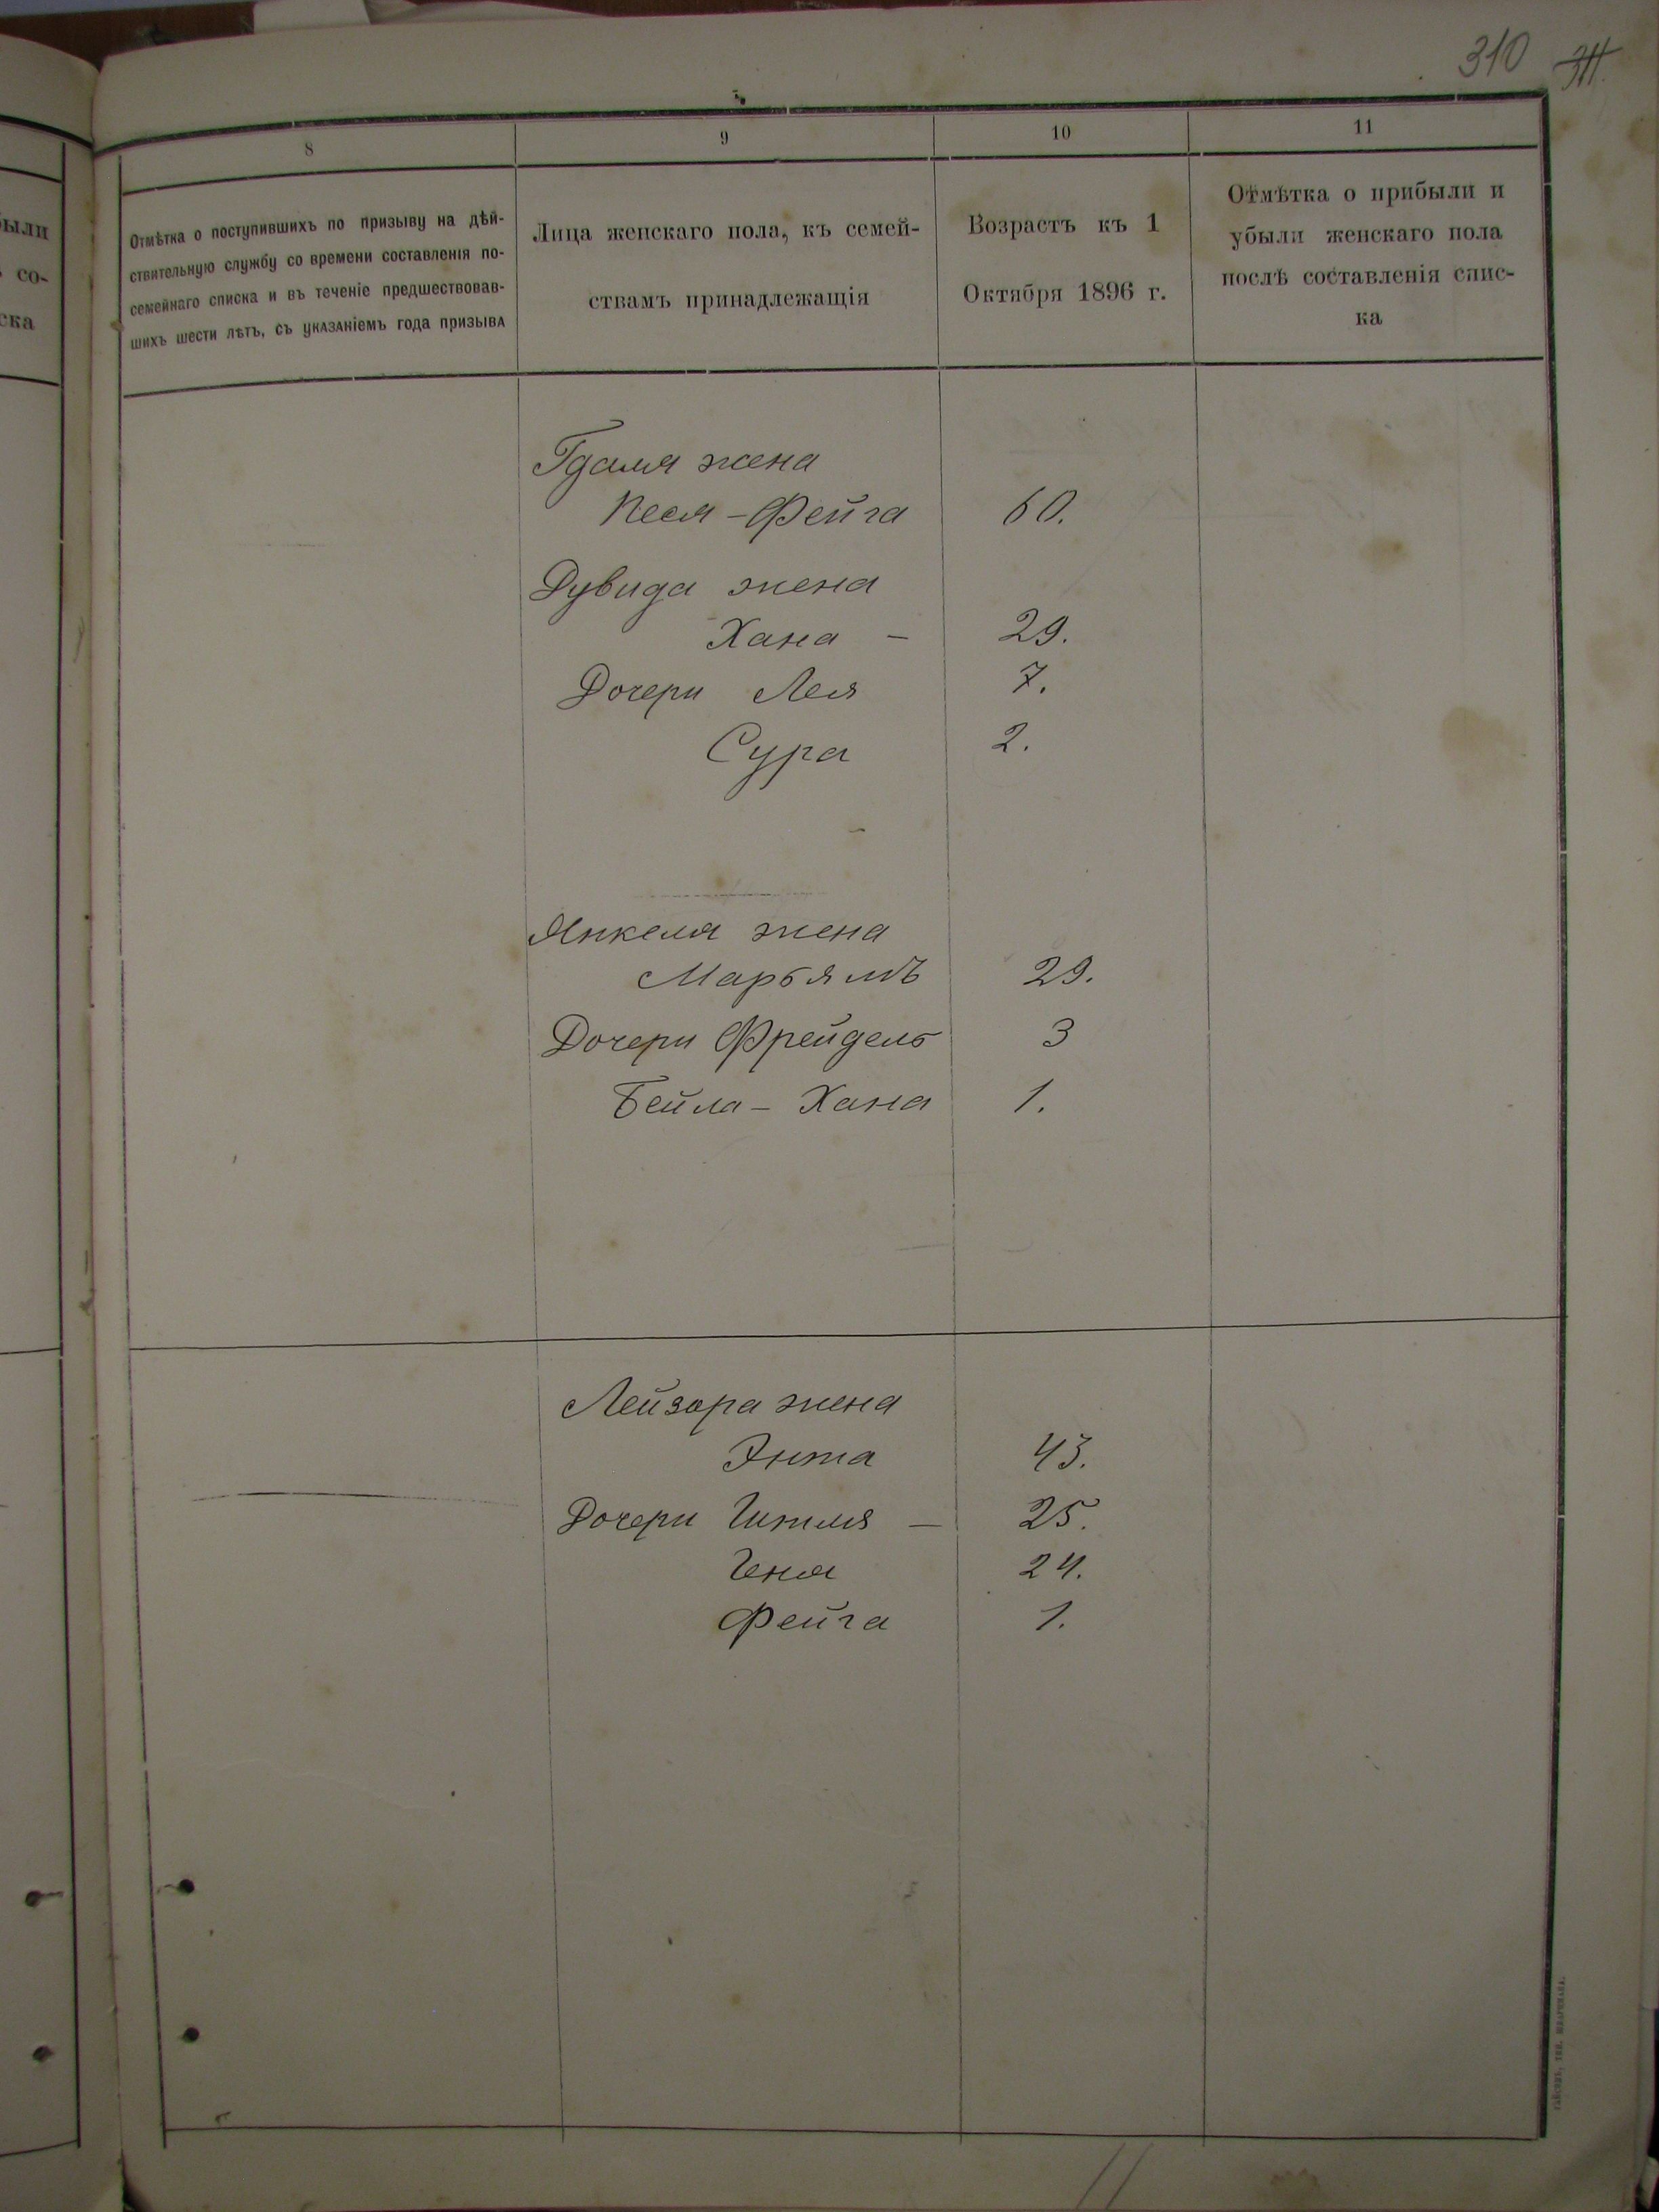 310 311.
8
9
10
11
Отмѣтка о поступившихъ по призыву на дѣй-
ствительную службу со времени составленія по-
семейнаго списка и въ теченіе предшествовав-
шихъ шести лѣтъ, съ указаніемъ года призыва
Лица женскаго пола, къ семей-
ствамъ принадлежащія
Возрастъ къ 1
Октября 1896 г.
Отмѣтка о прибыли и
убыли женскаго пола
послѣ составленія спис-
ка
были
со-
ска
Гдаля жена
Песя - Фейга 60.
Дувида жена
Хана - 29.
Дочери Лея 7.
Сура 2.
Янкеля жена
Марьямъ 29.
Дочери Фрейдель 3
Бейла - Хана 1.
Лейзора жена
Энта 43.
Дочери Гитля - 25.
Геня 24.
Фейга 1.